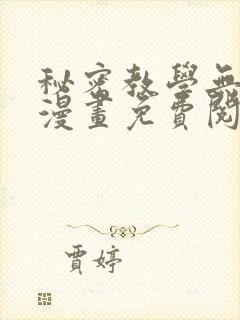 秘密教學無
漫畫免費閱
賈婷